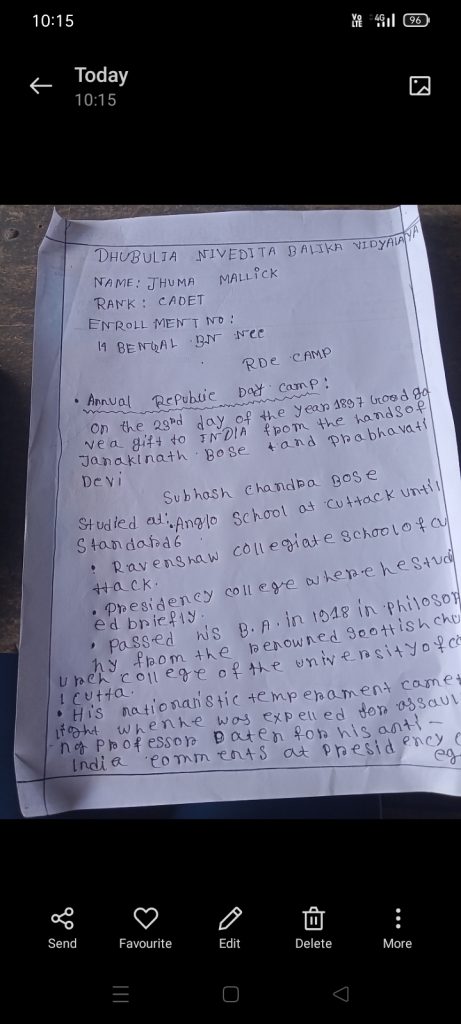 10:15
Vo LTE 4G 96
Today
10:15
DHUBULIA NIVEDITA BALIKA VIDYALAYA
NAME: JHUMA MALLICK
RANK: CADET
ENROLLMENT NO:
14 BENGAL BN NCC
RDC CAMP
• Annual Republic Day camp:
On the 23rd day of the year 1897 God ga
ve a gift to INDIA from the hands of
Janakinath Bose and Prabhavati
Devi
Subhash Chandra Bose
Studied at: Anglo School at Cuttack until
Standard 6
• Ravenshaw collegiate school of cu
ttack.
• Presidency college where he studi
ed briefly.
• Passed his B.A. in 1918 in philosop
hy from the renowned Scottish chu
urch college of the university of ca
lcutta.
• His nationalistic temperament came t
light when he was expelled for assaul
ng professor Oaten for his anti-
India comments at presidency c
eg
Send
Favourite
Edit
Delete
More